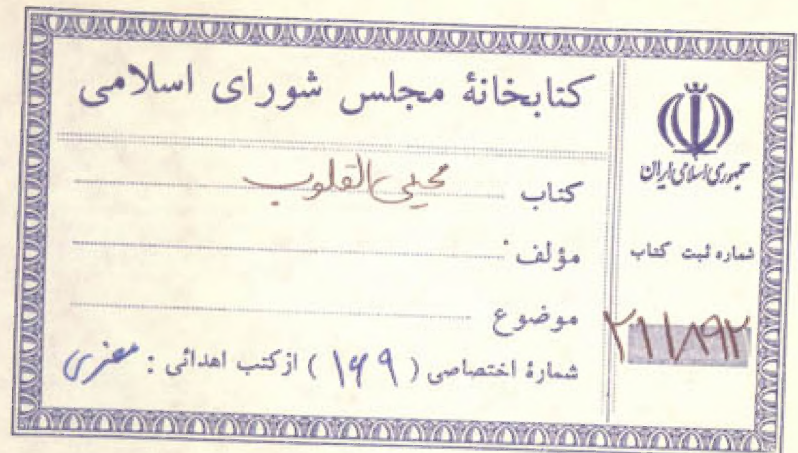 کتابخانهٔ مجلس شورای اسلامی
کتاب محیی القلوب
مؤلف
موضوع
شمارهٔ اختصاصی ( ۱۶۹ ) از کتب اهدائی :
جمهوری اسلامی ایران
شماره ثبت کتاب
۲۱۱۸۹۲